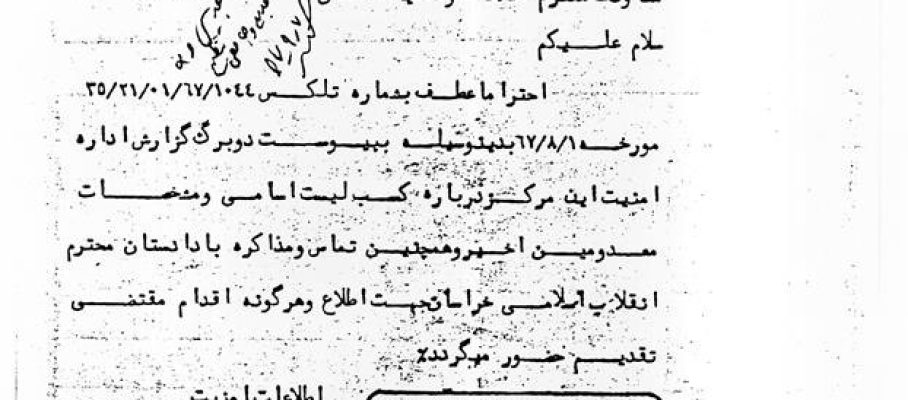 سلام علیکم
احتراما عطف بشماره تلکس ۳۵/۲۱/۰۱/۶۷/۱۰۴٤
مورخه ۶۷/۸/۱ بدینوسیله بپیوست دوبرگ گزارش اداره
امنیت این مرکز درباره کسب لیست اسامی ومشخصات
معدومین اخیر وهمچنین تماس ومذاکره با دادستان محترم
انقلاب اسلامی خراسان جهت اطلاع وهرگونه اقدام مقتضی
تقدیم حضور میگردد٪
اطلاعات امنیت